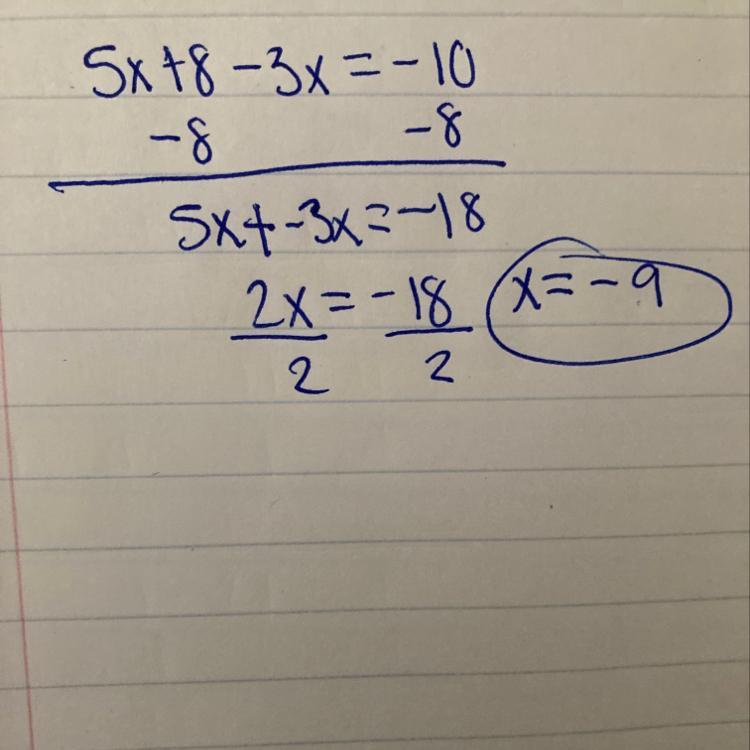 5x+8-3x=-10
-8 -8
5x+-3x=-18
2x=-18 x=-9
2 2